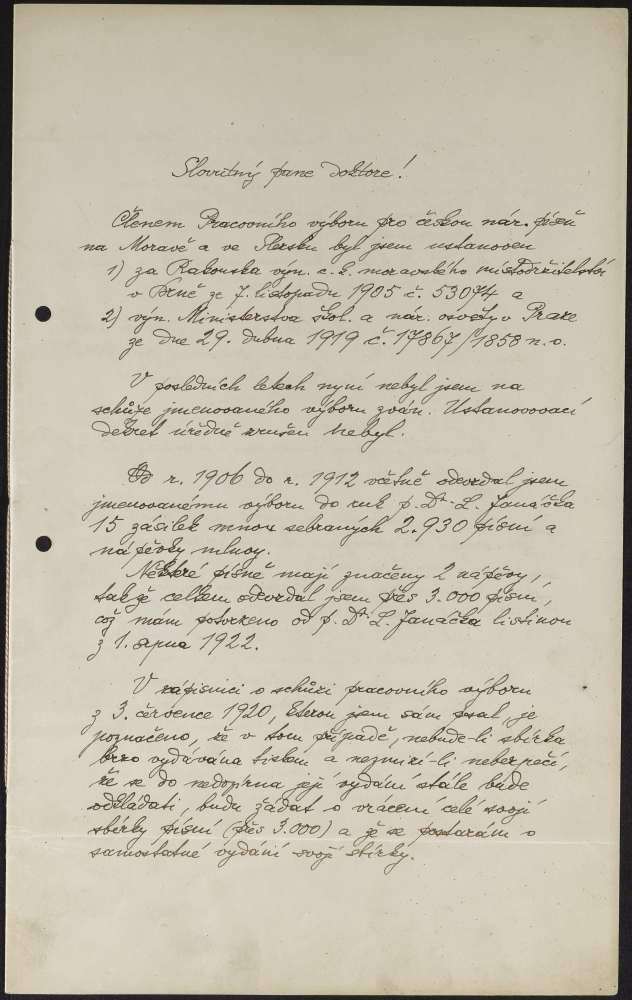 Slovutný pane doktore!
Členem Pracovního výboru pro českou nár. píseň
na Moravě a ve Slezsku byl jsem ustanoven
1) za Rakouska výn. c. k. moravského místodržitelství
v Brně ze 7. listopadu 1905 č. 53074 a
2) výn. Ministerstva škol. a nár. osvěty v Praze
ze dne 29. dubna 1919 č. 17867/1858 n. o.
V posledních letech nyní nebyl jsem na
schůze jmenovaného výboru zván. Ustanovovací
dekret úředně zrušen nebyl.
Od r. 1906 do r. 1912 včetně odevzdal jsem
jmenovanému výboru do ruk p. Dr. L. Janáčka
15 zásilek mnou sebraných 2.930 písní a
nápěvky mluvy.
Některé písně mají značeny 2 nápěvy,
takže celkem odevzdal jsem přes 3.000 písní,
což mám potvrzeno od p. Dr. L. Janáčka listinou
z 1. srpna 1922.
V zápisnici o schůzi pracovního výboru
z 3. července 1920, kterou jsem sám psal, je
poznačeno, že v tom případě, nebude-li sbírka
brzo vydávána tiskem a nezmizí-li nebezpečí,
že se do nedozírna její vydání stále bude
odkládati, budu žádat o vrácení celé svojí
sbírky písní (přes 3.000) a že se postarám o
samostatné vydání svojí sbírky.